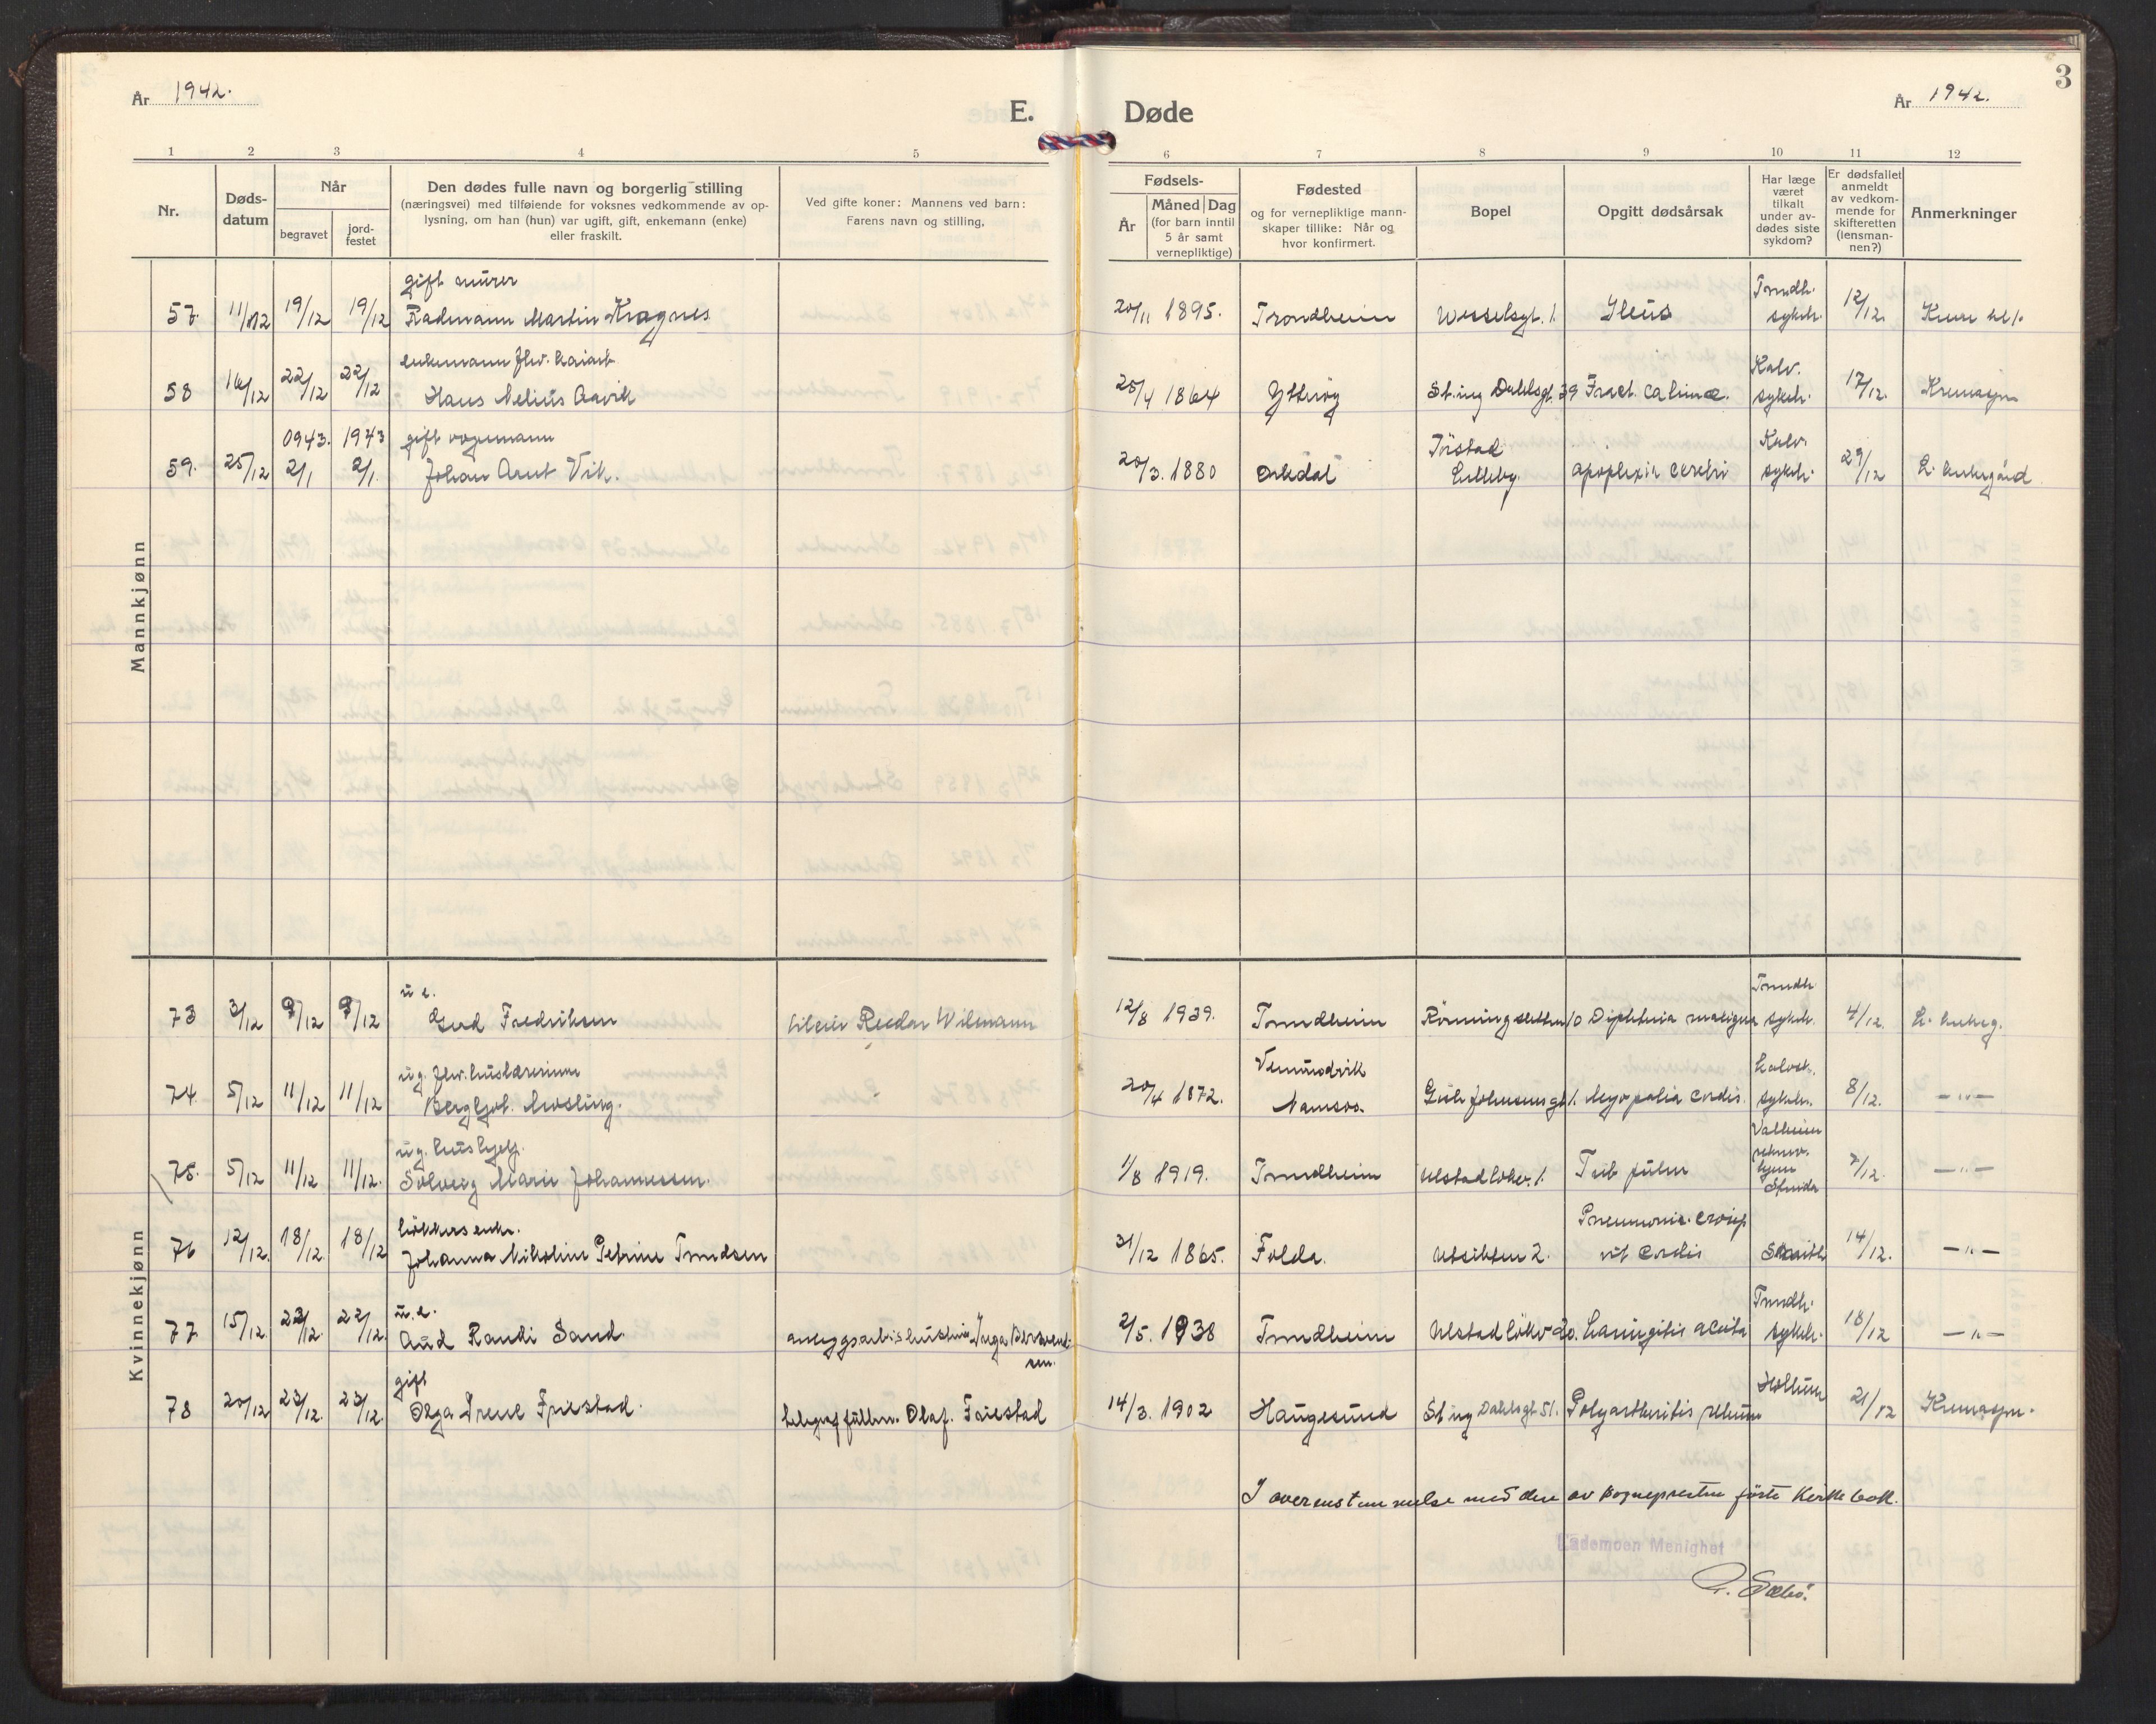 År 1942.
E. Døde
År 1942.
3
1 2 3 4 5 6 7 8 9 10 11 12
Nr.
Døds-
datum
Når
begravet
jord-
festet
Den dødes fulle navn og borgerlig stilling
(næringsvei) med tilføiende for voksnes vedkommende av op-
lysning, om han (hun) var ugift, gift, enkemann (enke)
eller fraskilt.
Ved gifte koner: Mannens ved barn:
Farens navn og stilling,
Fødsels-
År
Måned Dag
(for barn inntil
5 år samt
vernepliktige)
Fødested
og for vernepliktige mann-
skaper tillike: Når og
hvor konfirmert.
Bopel
Opgitt dødsårsak
Har læge
været
tilkalt
under av-
dødes siste
sykdom?
Er dødsfallet
anmeldt
av vedkom-
mende for
skifteretten
(lensman-
nen?)
Anmerkninger
Mannkjønn
gift murer Trondh.
57. 11/12 19/12 19/12 Martin Kragnes 20/11 1895. Trondheim Wesselsgt. 1. Ileus sykeh. 12/12.
enkemann Kalv.
58 16/12 22/12 22/12 Hans Nelius Aavik 25/4 1864 Ytterøy St. ing Dahlsgt. 39 Fract. sykeh. 17/12. Kremasjon
1943. 1943 gift vognmann Kalv.
59. 25/12 2/1 2/1. Johan Arnt Vik. 20/3. 1880 Orkdal Lilleby. apoplexia cerebri sykeh. 29/12 L. kirkegård
Kvinnekjønn
u e. Trondh.
73 3/12 9/12 9/12 Gerd Fredriksen Reidar Wilmann 12/8 1939. Trondheim Rønningsletten 10 Diphteria maligna sykeh. 4/12. L. kirkeg.
ug. Vemundvik
74. 5/12 11/12 11/12 Bergljot 20/4 1872. Namsos. cordis. sykeh. 8/12. —"—
ug. hushjelp.
75. 5/12 11/12 11/12. Solveig Marie Johannessen. 1/8 1919. Trondheim Ulstadløkv. 1. Tub pulm 7/12. —"—
Pneumonia. croup
76 12/12. 18/12. 18/12 Johanna Nikoline Petrine Trondsen 31/12 1865. Folda. Utsikten 2. vit cordis 14/12. —"—
u. e. Trondh.
77 15/12. 22/12. 22/12. Aud Randi Sand. 2/5. 1938 Trondheim Ulstadløkv 20. Laringitis acuta sykeh. 18/12 —"—
gift
78 20/12 23/12. 23/12. Olga Irene Friestad. Olaf. Friestad 14/3. 1902 Haugesund St ing Dahlsgt 51. Polyarthritis rheum 21/12 Kremasjon.
I overenstemmelse med den av sognepresten førte kirkebok.
Lademoen Menighet